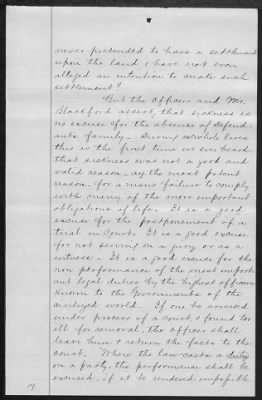 never pretended to have a settlement
upon the land & have not even
alleged an intention to make such
settlement?
But the Officers and Mr.
Blackford assert, that sickness is
no excuse for the absence of defend-
ants family. During our whole lives
this is the first time we ever heard
that sickness was not a good and
valid reason, ay the most potent
reason, for a man's failure to comply
with many of the more important
obligations of life. It is a good
excuse for the postponement of a
trial in Court. It is a good excuse
for not serving on a jury or as a
witness. It is a good excuse for the
non performance of the most import-
ant legal duties by the highest officers
known to the Governments of the
civilized world. If one be arrested
under process of a court, & found too
ill for removal, the officer shall
leave him & return the facts to the
court. "Where the law casts a duty
on a party, the performance shall be
excused, if it be rendered impossible